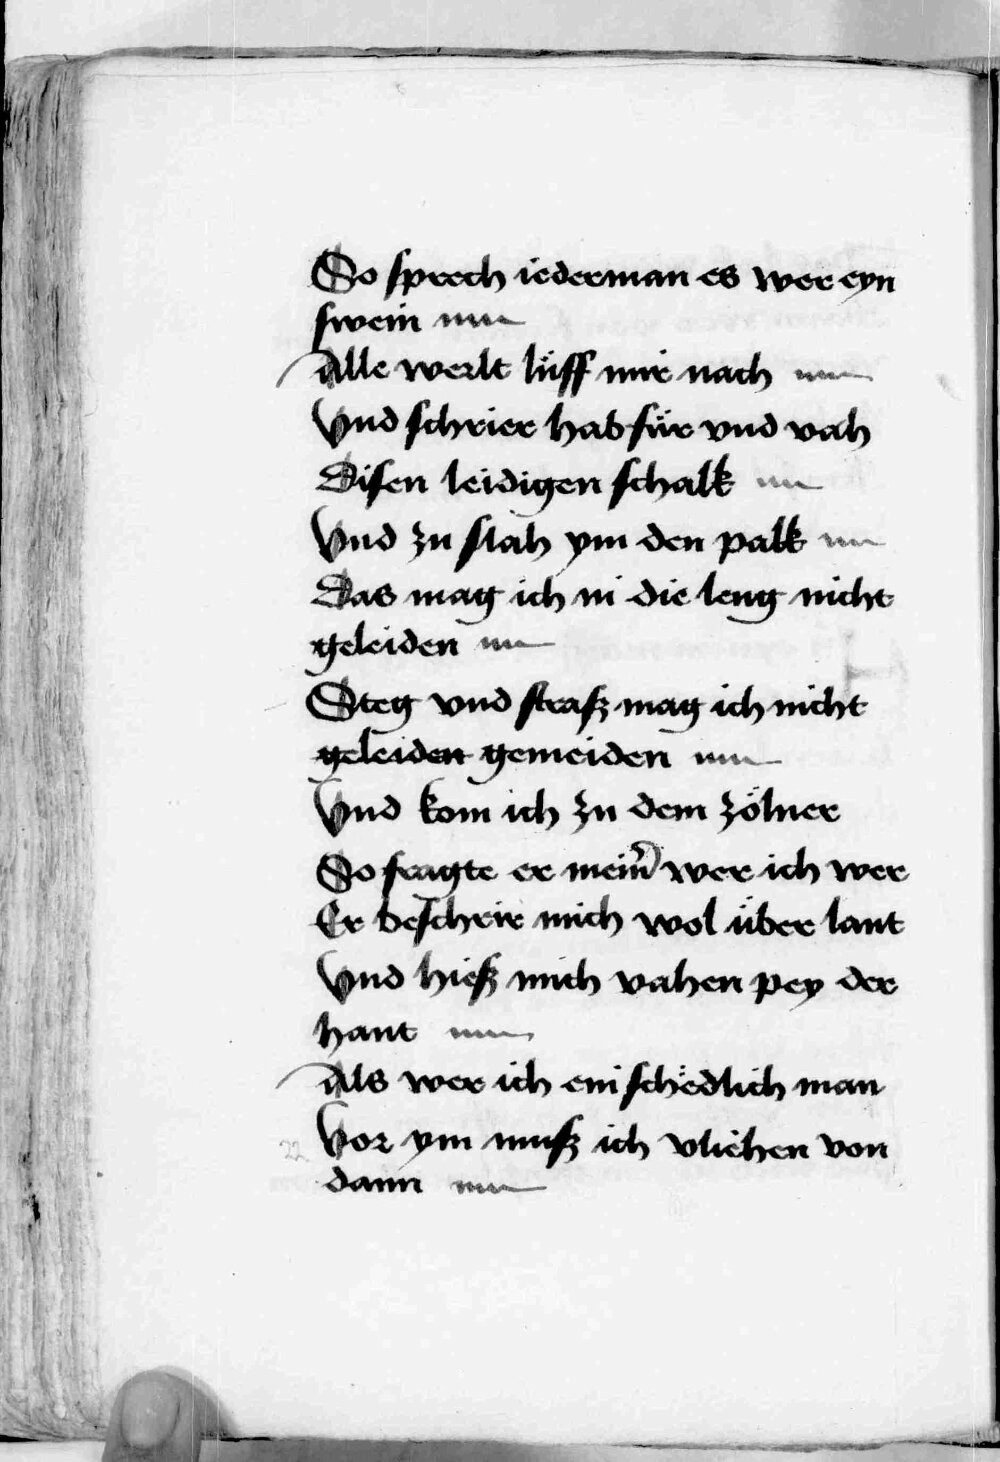 So sprech iederman es wer eyn
swein
Alle werlt lu̍ff mir nach
Vnd schrier hab fu̍r vnd vah
Disen leidigen schalk
Vnd zu slah ym den palk
Das mag ich in die leng nicht
geleiden
Steg vnd strasz mag ich nicht
geleiden gemeiden
Vnd kom ich zu dem zölner
So fragte er mein̄ wer ich wer
Er beschrir mich wol über lant
Vnd hiesz mich vahen pey der
hant
Als wer ich ein schëdlich man
Vor ym musz ich vliehen von
dann